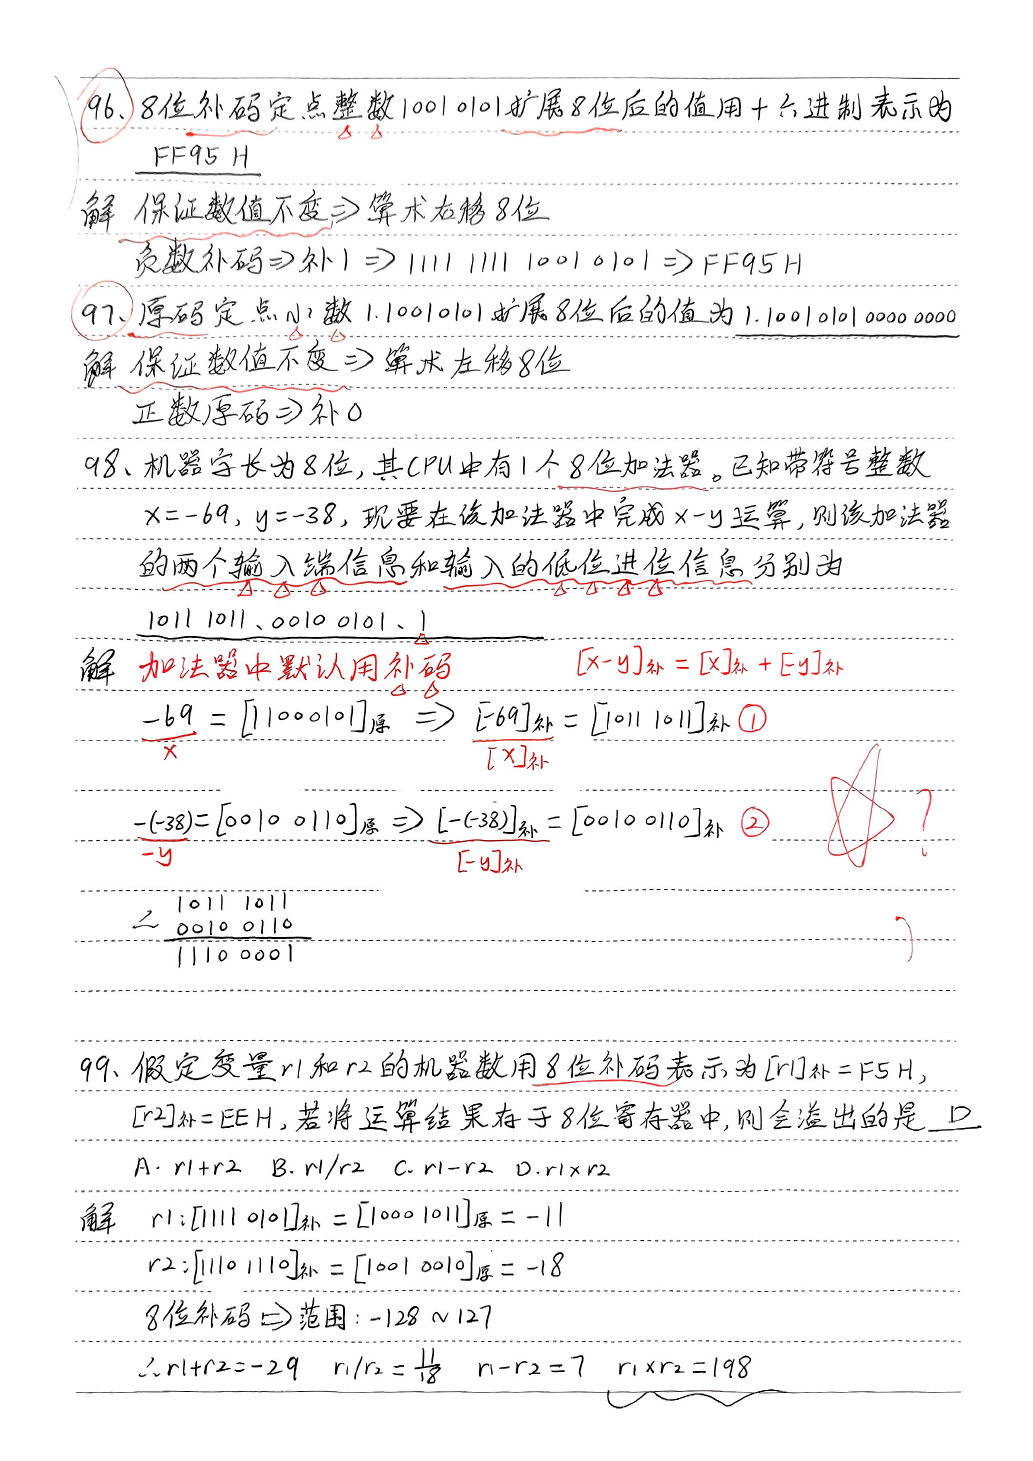 96、8位补码定点整数10010101扩展8位后的值用十六进制表示为
FF95 H
解 保证数值不变⇒算术右移8位
负数补码⇒补1⇒1111 1111 1001 0101⇒FF95H
97、原码定点小数1.10010101扩展8位后的值为1.10010101 0000 0000
解 保证数值不变⇒算术左移8位
正数原码⇒补0
98、机器字长为8位,其CPU中有1个8位加法器。已知带符号整数
x=-69, y=-38, 现要在该加法器中完成x-y运算,则该加法器
的两个输入端信息和输入的低位进位信息分别为
1011 1011、0010 0101、1
解 加法器中默认用补码 [x-y]补=[x]补+[-y]补
-69=[11000101]原⇒[-69]补=[1011 1011]补①
x [x]补
-(-38)=[0010 0110]原⇒[-(-38)]补=[0010 0110]补②
-y [-y]补
?
1011 1011
∴ 0010 0110
1110 0001
99、假定变量r1和r2的机器数用8位补码表示为[r1]补=F5H,
[r2]补=EEH,若将运算结果存于8位寄存器中,则会溢出的是 D
A. r1+r2 B. r1/r2 C. r1-r2 D. r1×r2
解 r1:[1111 0101]补=[1000 1011]原=-11
r2:[1110 1110]补=[1001 0010]原=-18
8位补码⇒范围:-128~127
∴r1+r2=-29 r1/r2=11/18 r1-r2=7 r1×r2=198